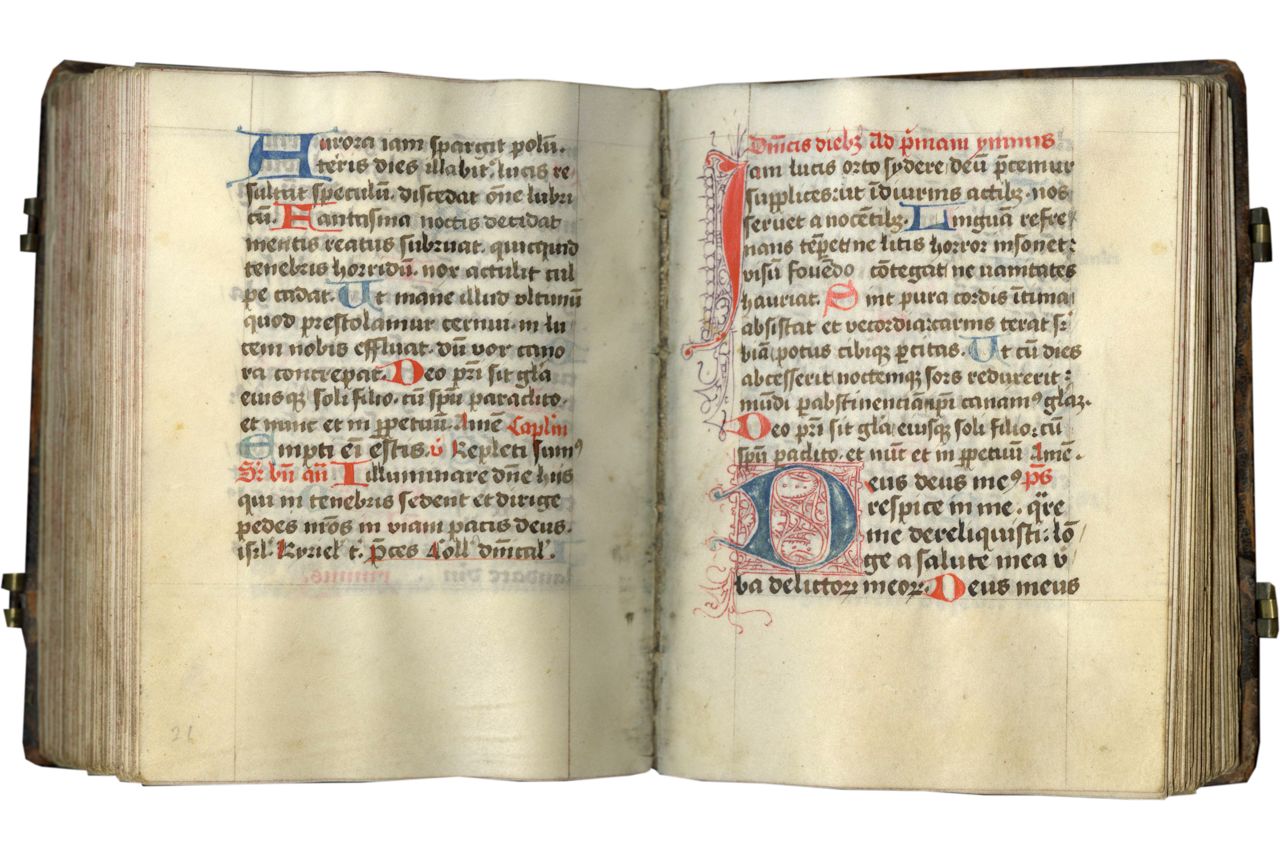 Aurora iam spargit polū.
terris dies illabit᷒. lucis re
sultat speculū. discedat om̄e lubri
cū. Fantasma noctis decidat
mentis reatus subruat. quicquid
tenebris horridū. nox attulit cul
pe cadat. Ut mane illud vltimū
quod prestolamur cernui. in lu
cem nobis effluat. dū vox cano
ra concrepat. Deo pr̄i sit gl̄a
eiusqꝫ soli filio. cū spū paraclito.
et nunc et in ꝑpetuū. Amē Caplm
Empti em̄ estis. v̄ Repleti sumꝰ
Illuminare dn̄e hiis
qui in tenebris sedent et dirige
pedes nr̄os in viam pacis deus.
isrl̄. Kyriel p̄ces
21
Dn̄icis diebꝫ ad p̄mam ymnus
Iam lucis orto sydere deū p̄cemur
supplices: ut ī diurnis actibꝫ. nos
seruet a nocētibꝫ. Linguā refre
nans tēperet ne litis horror insonet:
visū fouēdo cōtegat ne uanitates
hauriat. Sint pura cordis ītima
absistat et vecordia: carnis terat sr̄
biā potus cibiqꝫ ꝑcitas. Ut cū dies
abcesserit noctemqꝫ sors reduxerit:
mūdi per abstinenciā ip̄i canamꝰ gl̄aꝫ.
Deo pr̄i sit gl̄a eiusqꝫ soli filio: cū
spū paclito. et nūc et in ꝑpetuū Amē.
Deus deus meꝰ p̄s
respice in me. qr̄e
me dereliquisti: lō
ge a salute mea v̄
ba delictoꝝ meoꝝ. Deus meus